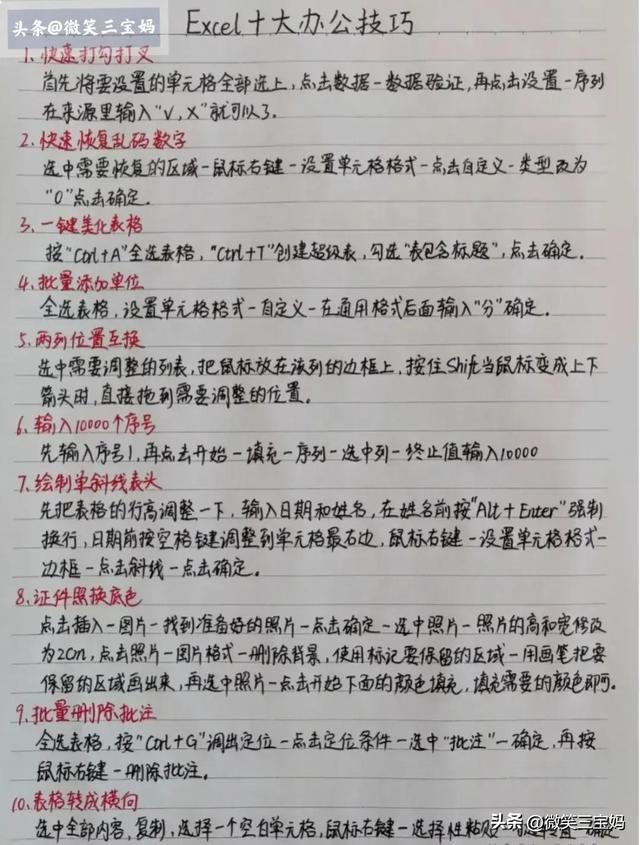 头条@微笑三宝妈
Excel十大办公技巧
1、快速打勾打叉
首先将要设置的单元格全部选上，点击数据-数据验证，再点击设置-序列
在来源里输入“√，×”就可以了。
2、快速恢复乱码数字
选中需要恢复的区域-鼠标右键-设置单元格格式-点击自定义-类型改为
“0”点击确定。
3、一键美化表格
按“Ctrl+A”全选表格，“Ctrl+T”创建超级表，勾选“表包含标题”，点击确定。
4、批量添加单位
全选表格，设置单元格格式-自定义-在通用格式后面输入“分”确定。
5、两列位置互换
选中需要调整的列表，把鼠标放在该列的边框上，按住Shift当鼠标变成上下
箭头时，直接拖到需要调整的位置。
6、输入10000个序号
先输入序号1，再点击开始-填充-序列-选中列-终止值输入10000
7、绘制单斜线表头
先把表格的行高调整一下，输入日期和姓名，在姓名前按“Alt+Enter”强制
换行，日期前按空格键调整到单元格最右边，鼠标右键-设置单元格格式-
边框-点击斜线-点击确定。
8、证件照换底色
点击插入-图片-找到准备好的照片-点击确定-选中照片-照片的高和宽修改
为20cn，点击照片-图片格式-删除背景，使用标记要保留的区域-用画笔把要
保留的区域画出来，再选中照片-点击开始下面的颜色填充，填充需要的颜色即可。
9、批量删除批注
全选表格，按“Ctrl+G”调出定位-点击定位条件-选中“批注”-确定，再按
鼠标右键-删除批注。
10、表格转成横向
选中全部内容，复制，选择一个空白单元格，鼠标右键-选择性粘贴
头条@微笑三宝妈